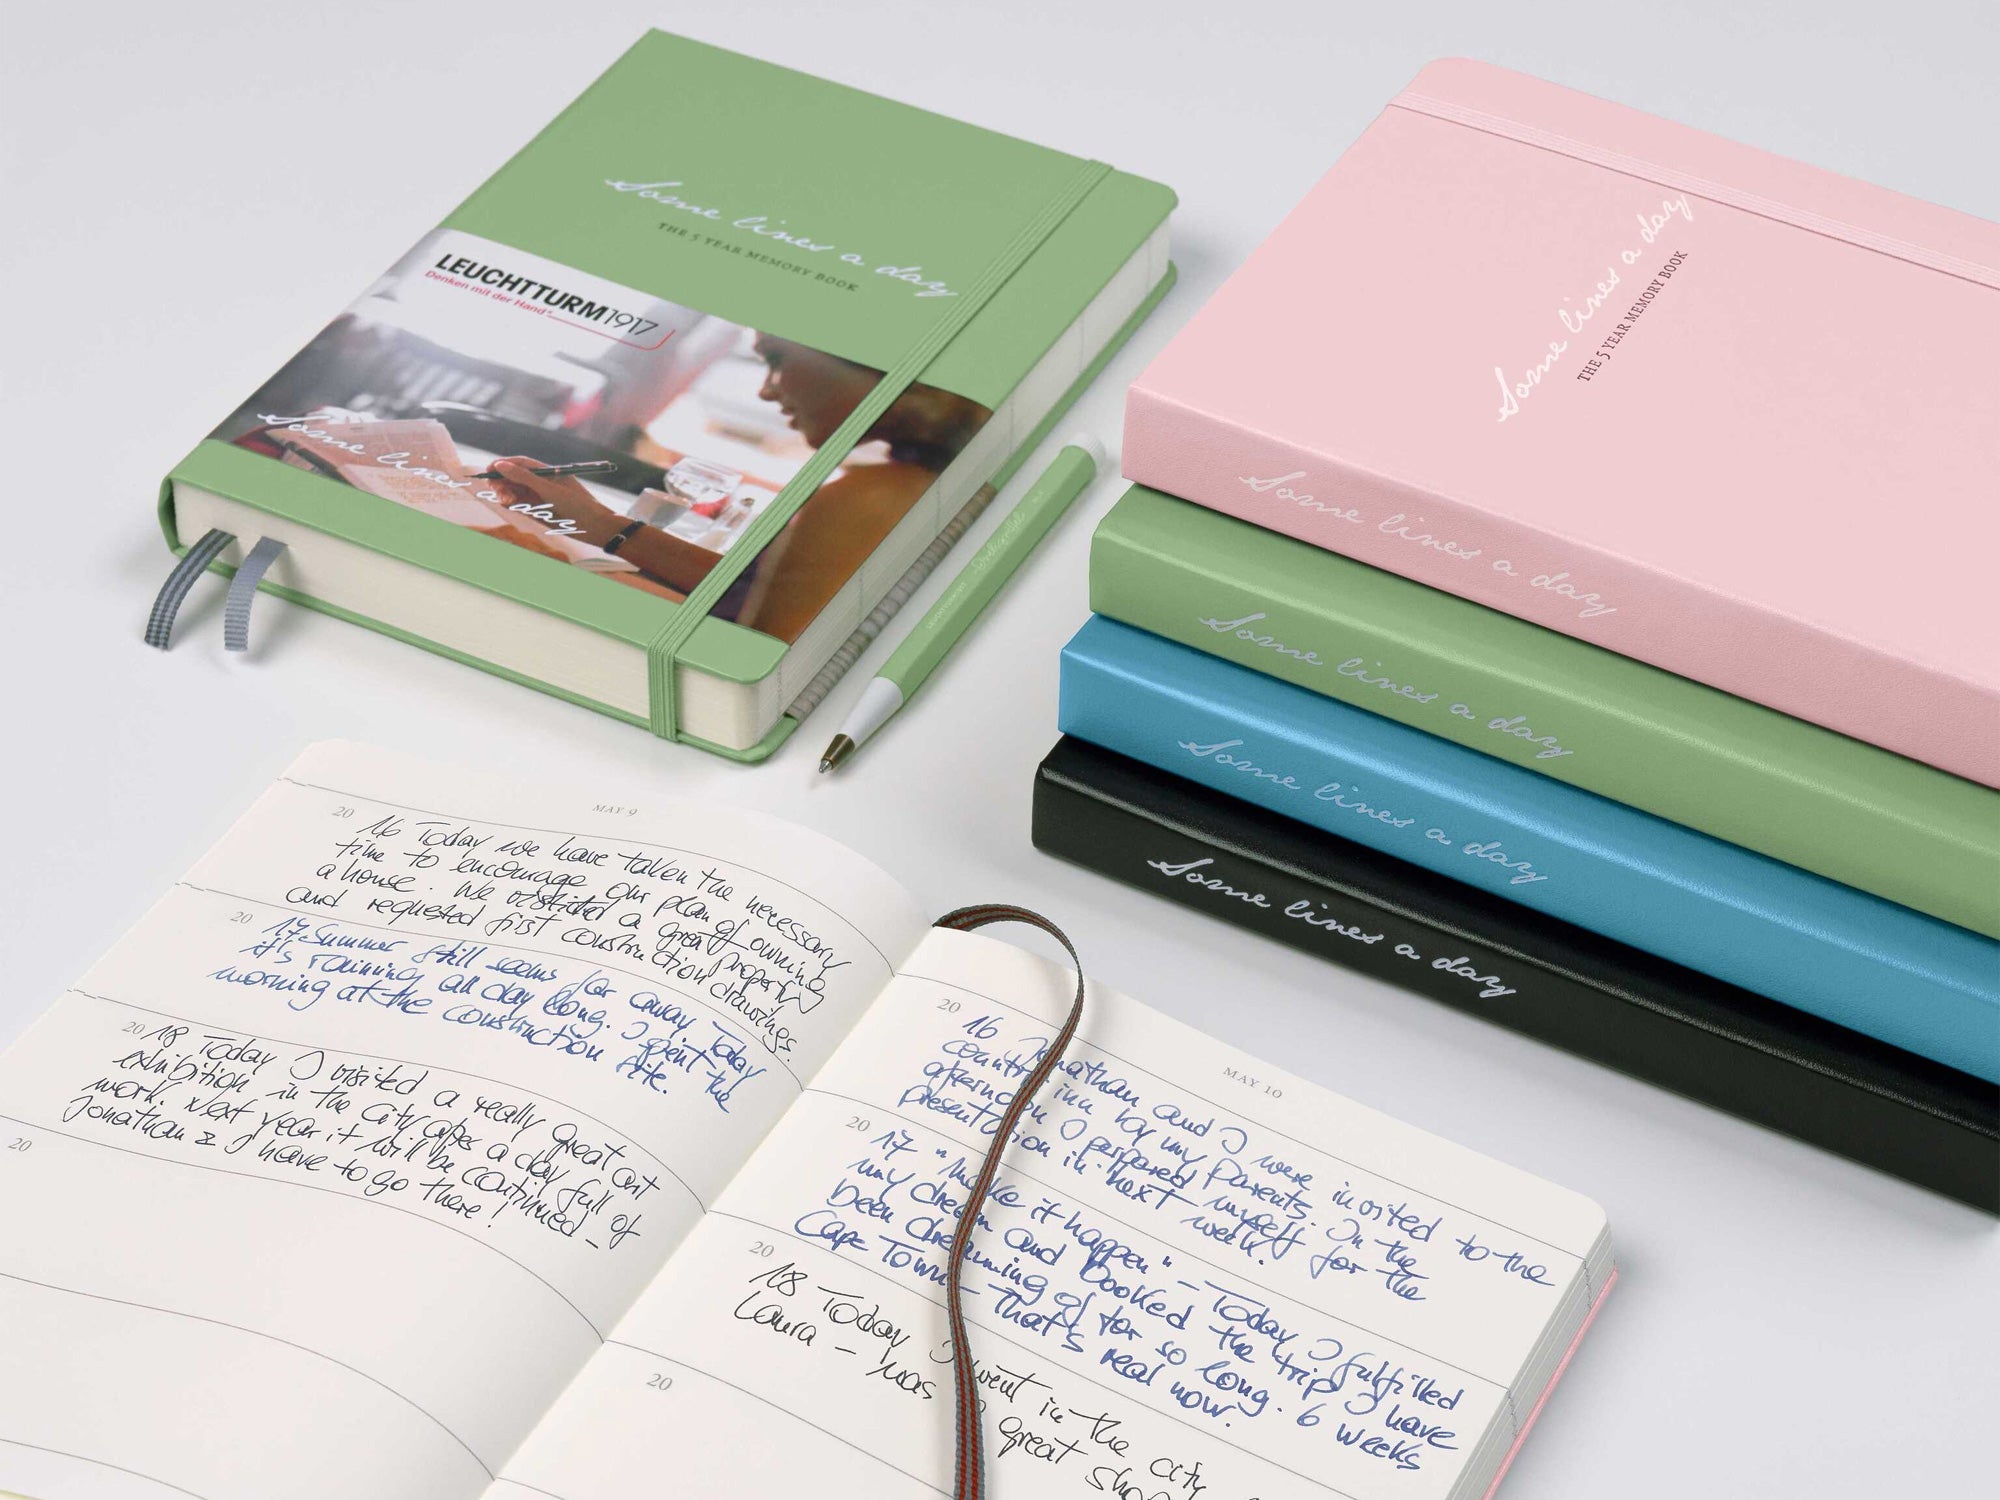 Some lines a day
THE 5 YEAR MEMORY BOOK
LEUCHTTURM1917
Denken mit der Hand®
Some lines a day
LEUCHTTURM1917
Some lines a day
THE 5 YEAR MEMORY BOOK
Some lines a day
Some lines a day
Some lines a day
Some lines a day
MAY 9
20 16 Today we have taken the necessary
time to encourage our plan of owning
a house. We visited a great property
and requested first construction drawings.
20 17 Summer still seems far away. Today
it's raining all day long. I spent the
morning at the construction site.
20 18 Today I visited a really great art
exhibition in the city after a day full of
work. Next year it will be continued –
Jonathan & I have to go there!
20
MAY 10
20 16 Jonathan and I were invited to the
country inn by my parents. In the
afternoon I perpared myself for the
presentation in next week.
20 17 "Make it happen" – Today I fulfilled
my dream and booked the trip I have
been dreaming of for so long. 6 weeks
Cape Town – that's real now.
20 18 Today I went in the city
Laura – was great
20